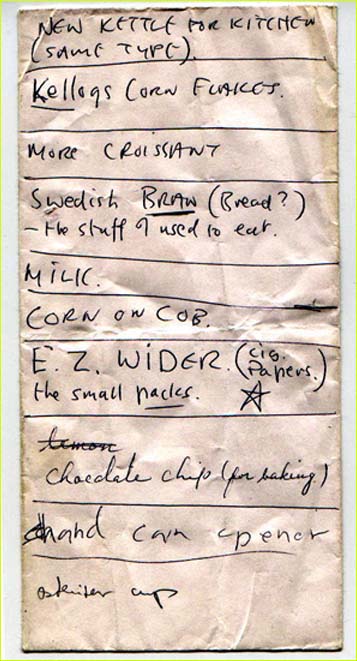 NEW KETTLE FOR KITCHEN
(SAME TYPE).
Kellogs CORN FLAKES.
MORE CROISSANT
Swedish BRAW (Bread?)
- the stuff I used to eat.
MILK.
CORN ON COB.
E. Z. WIDER. (cig. Papers.)
the small packs.
lemon
chocolate chip (for baking)
hand can opener
cup